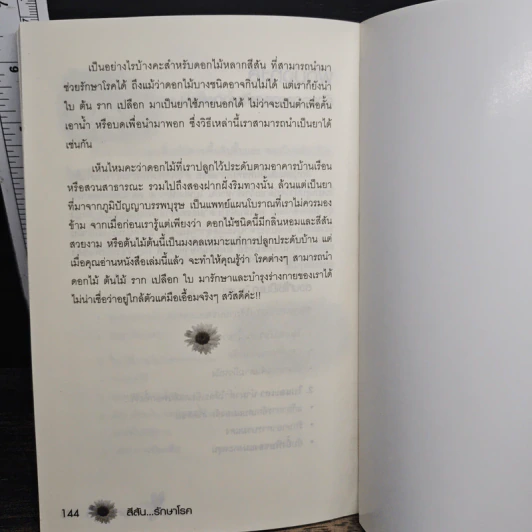 เป็นอย่างไรบ้างคะสำหรับดอกไม้หลากสีสัน ที่สามารถนำมา
ช่วยรักษาโรคได้ ถึงแม้ว่าดอกไม้บางชนิดอาจกินไม่ได้ แต่เราก็ยังนำ
ใบ ต้น ราก เปลือก มาเป็นยาใช้ภายนอกได้ ไม่ว่าจะเป็นตำเพื่อคั้น
เอาน้ำ หรือบดเพื่อนำมาพอก ซึ่งวิธีเหล่านี้เราสามารถนำเป็นยาได้
เช่นกัน
เห็นไหมคะว่าดอกไม้ที่เราปลูกไว้ประดับตามอาคารบ้านเรือน
หรือสวนสาธารณะ รวมไปถึงสองฝากฝั่งริมทางนั้น ล้วนแต่เป็นยา
ที่มาจากภูมิปัญญาบรรพบุรุษ เป็นแพทย์แผนโบราณที่เราไม่ควรมอง
ข้าม จากเมื่อก่อนเรารู้แต่เพียงว่า ดอกไม้ชนิดนี้มีกลิ่นหอมและสีสัน
สวยงาม หรือต้นไม้ต้นนี้เป็นมงคลเหมาะแก่การปลูกประดับบ้าน แต่
เมื่อคุณอ่านหนังสือเล่มนี้แล้ว จะทำให้คุณรู้ว่า โรคต่างๆ สามารถนำ
ดอกไม้ ต้นไม้ ราก เปลือก ใบ มารักษาและบำรุงร่างกายของเราได้
ไม่น่าเชื่อว่าอยู่ใกล้ตัวแค่มือเอื้อมจริงๆ สวัสดีค่ะ!!
144 สีสัน...รักษาโรค